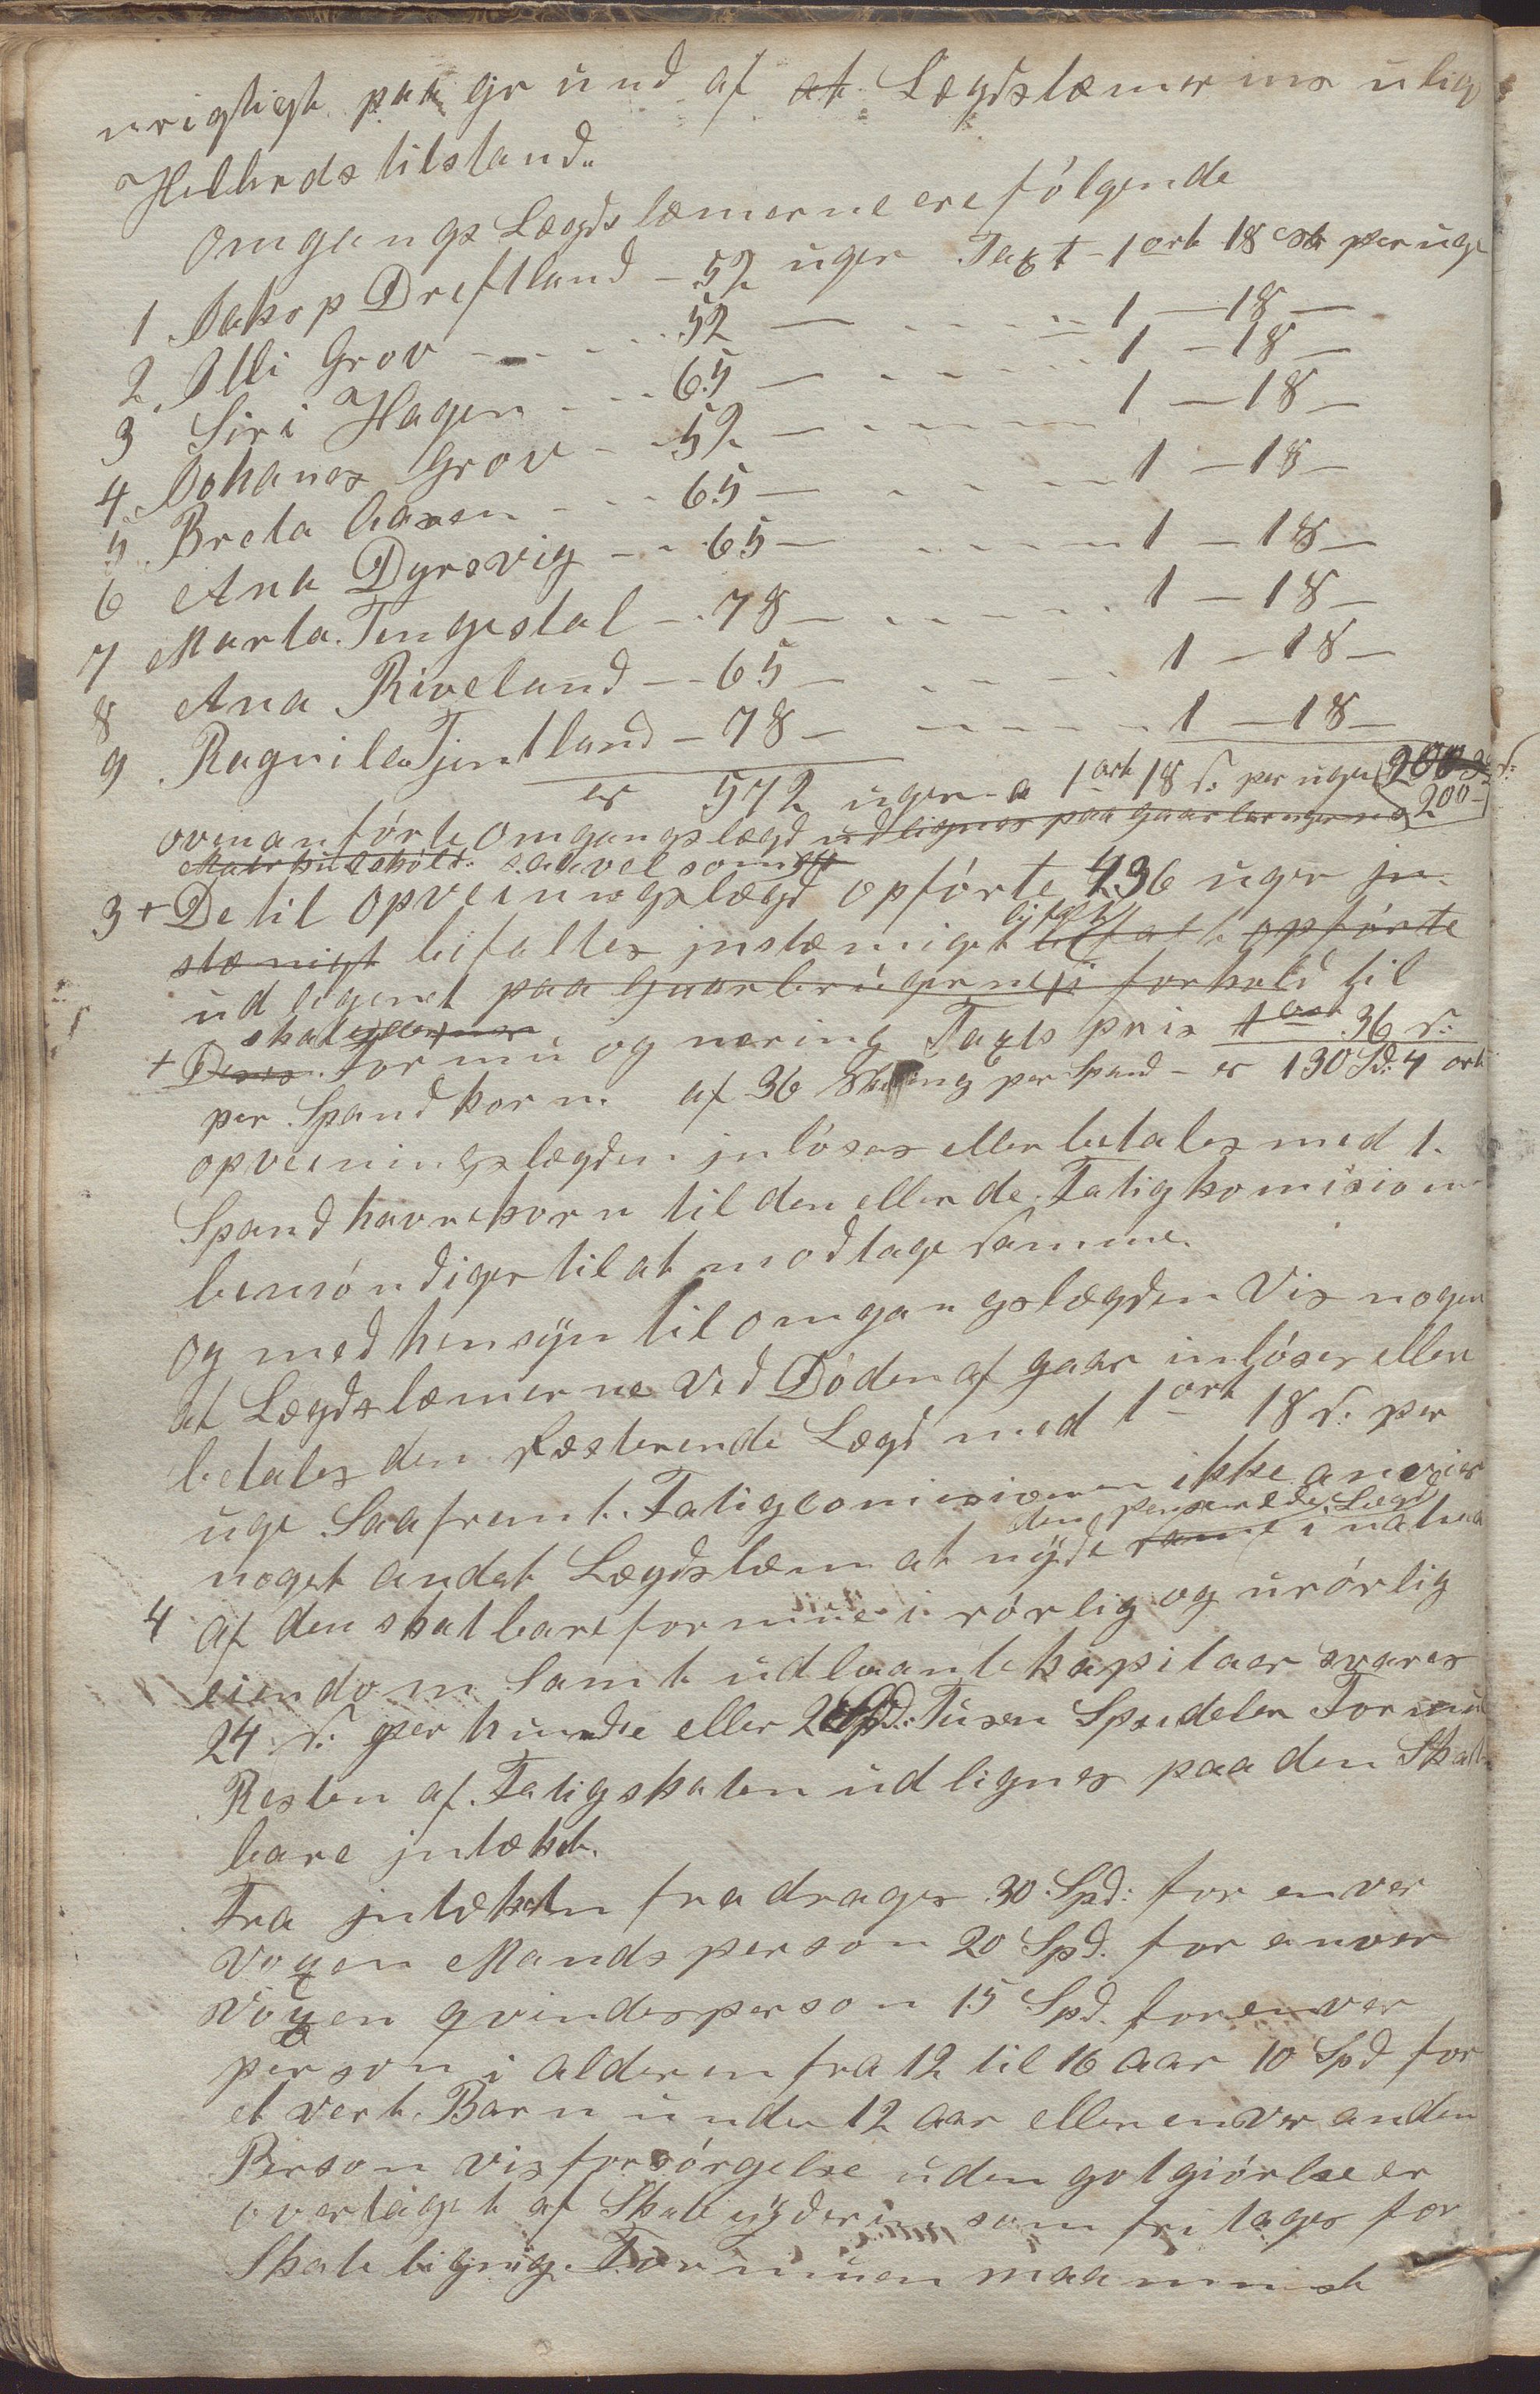 urigtigt paa grund af at Lægdslæmerins ulig
Helbrds tilstand"
Omgangs Lægdslæmerne ere følgende
1 Jakop Dreftland - 52 uger Taxt - 1 ort 18 sk per uge
2 Olli Grov - - - . . 52 — - - - - 1 — 18 —
3 Siri Hagen - - - 65 — - - - - 1 — 18 —
4 Johanes Grov - - 52 — - - - - 1 — 18 —
5 Breta Aasen - - - 65 — - - - - 1 — 18 —
6 Ana Dyrsvig - - - 65 — - - - - 1 — 18 —
7 Marta Tengestal - - 78 — - - - - 1 — 18 —
8 Ana Riveland - - 65 — - - - - 1 — 18 —
9 Ragnila Tjentland - 78 — - - - - 1 — 18 —
er 572 uger a 1 ort 18 s: per uge
200 -
ovenanførte omgangslægd udlignes paa gaarbrugernes
saavel som
3 + De til opveiningslægd opførte 436 uger jn-
stæmigt bifaltes jnstæmiget bifalt opførte
udlignet paa Gaarbrugerne i forhold til
skat
+ Deres formu og nering Taxts pris 1 ort 36 s:
per Spand korn af 36 Skiling per Spand - er 130 Sd: 4 ort
opveiningslægden jnløses eller betales med 1
Spand havrekorn til den eller de Fatigkomisionen
bemøndiger til at modtage samme.
og med hensÿn til omgangslægden Vis nogen
af Lægdslæmerne ved Døden af gaar inløses eller
betales den Ræsterende Lægd med 1 ort 18 s: per
uge Saafremt Fatigcomisionen ikke anviser
den pensenede Lægd
noget andet Lægdslæm at nÿde same i natura
4 af den skatbare formue i rørlig og urørlig
eiendom Samt udlaante kapitaer svares
24 s: per hundre eller 2 Spd: Tusen Spesidaler Formu
Resten af Fatigskaten udlignes paa den Skat
bare jntækt.
Fra jntækten fradrages 30 Spd: for enver
voxen Mands person 20 Spd. for enver
voxen qvindesperson 15 Spd. for enver
person i alderen fra 12 til 16 aar 10 Spd for
et vert Barn under 12 aar eller enver anden
Person vis forsørgelse uden gotgiørlse er
overtaget af Skateÿderen som fritages for
Skatelignig. Formuen maa minst